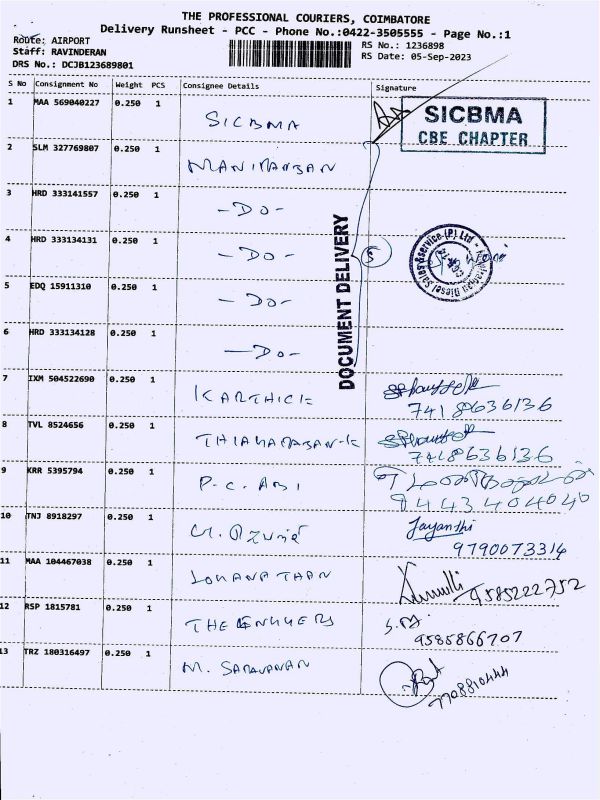 THE PROFESSIONAL COURIERS, COIMBATORE
Delivery Runsheet - PCC - Phone No.:0422-3505555 - Page No.:1
Route: AIRPORT
Staff: RAVINDERAN
DRS No.: DCJB123689801
RS No.: 1236898
RS Date: 05-Sep-2023
S No Consignment No Weight PCS Consignee Details Signature
1 MAA 569040227 0.250 1 SICBMA
SICBMA
CBE CHAPTER
2 SLM 327769807 0.250 1
3 HRD 333141557 0.250 1 -DO-
4 HRD 333134131 0.250 1 -DO- 5
5 EDQ 15911310 0.250 1 -DO-
6 HRD 333134128 0.250 1 -DO-
DOCUMENT DELIVERY
7 IXM 504522690 0.250 1 KARTHICK 7418636136
8 TVL 8524656 0.250 1 7418636136
9 KRR 5395794 0.250 1 P.C. ABI 9443404040
10 TNJ 8918297 0.250 1 Jayanthi
9790073314
11 MAA 104467038 0.250 1 LOKANATHAN 9585222752
12 RSP 1815781 0.250 1 9585866707
13 TRZ 180316497 0.250 1 M. SARAVANAN 7708810444